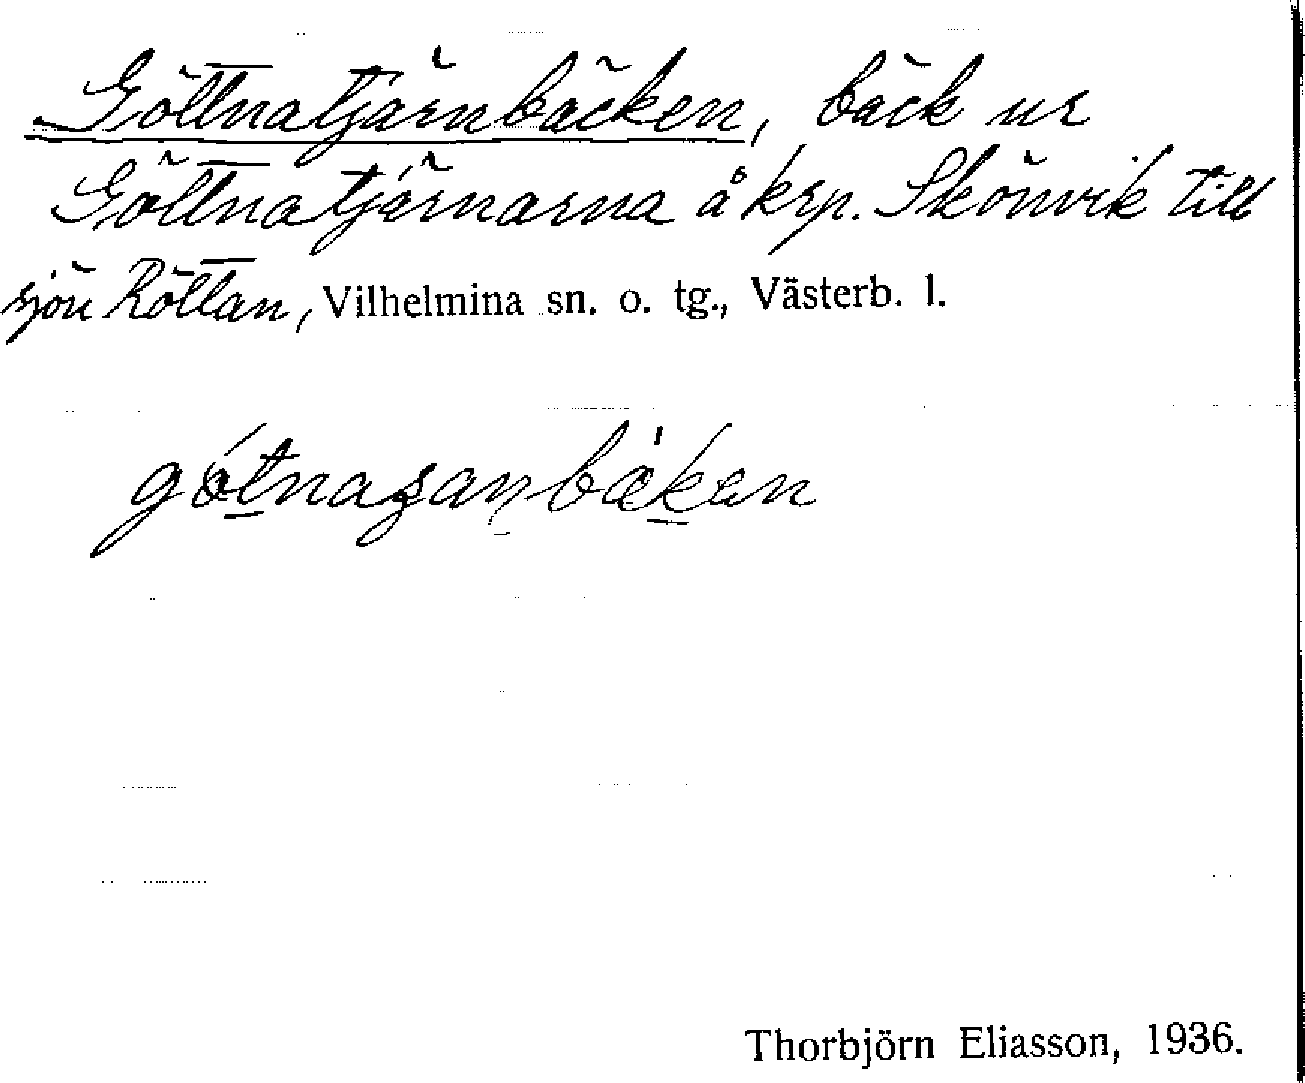 Göttnatjärnbäcken, bäck ur
Göttnatjärnarna å krp. Skönvik till
sjön Röttan, Vilhelmina sn. o. tg., Västerb. l.
Thorbjörn Eliasson, 1936.